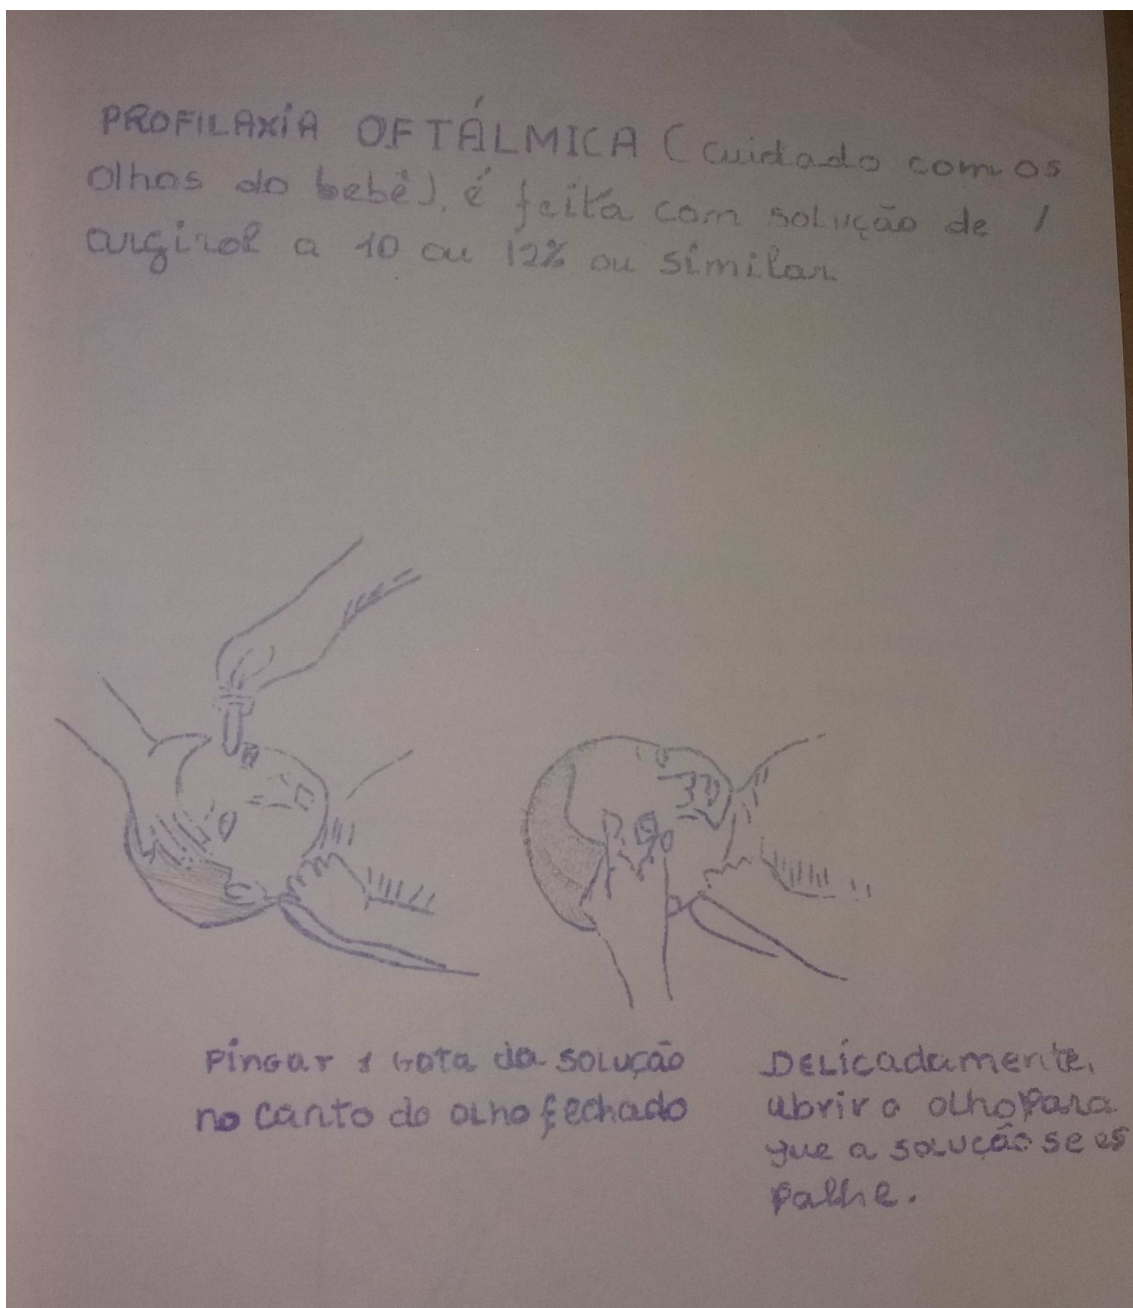 PROFILAXIA OFTÁLMICA (cuidado com os
olhos do bebê), é feita com solução de /
argirol a 10 ou 12% ou similar
Pingar 1 gota da solução
no canto do olho fechado
Delicadamente,
abrir o olho para
que a solução se es
palhe.